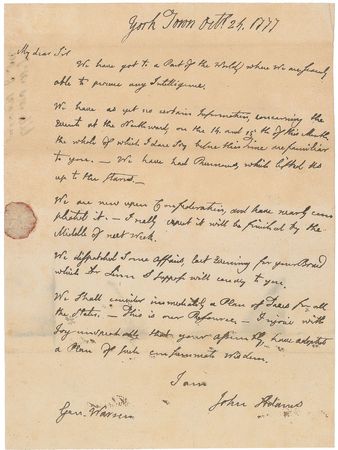 York Town Octr. 24. 1777
My dear Sir
We have got to a Part of the World, where We are scarcely
able to procure any Intelligence.
We have as yet no certain Information, concerning the
Events at the Northward, on the 14 and 15th of this Month
the whole of which I dare say before this time are familiar
to you. — We have had Rumours, which lifted Us
up to the Stars. —
We are now upon Confederation, and have nearly com
pleated it. — I really expect it will be finished by the
Middle of next Week.
We dispatched some Affairs last Evening for your Board
which Dr Linn I suppose will convey to you.
We shall consider immediately a Plan of Taxes for all
the States. — This is our Resource. — I rejoice with
Joy unspeakable that your Assembly, have adopted
a Plan of such consummate Wisdom.
I am
John Adams
Gen. Warren